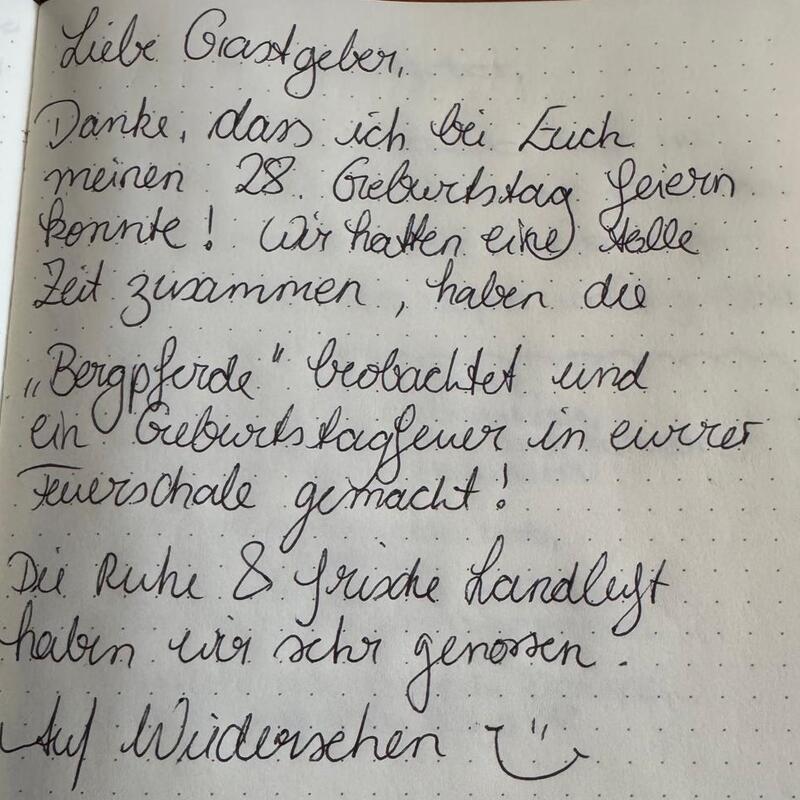 Liebe Gastgeber,
Danke, dass ich bei Euch
meinen 28. Geburtstag feiern
konnte! Wir hatten eine tolle
Zeit zusammen, haben die
„Bergpferde" beobachtet und
ein Geburtstagsfeuer in eurer
Feuerschale gemacht!
Die Ruhe & frische Landluft
haben wir sehr genossen.
Auf Wiedersehen